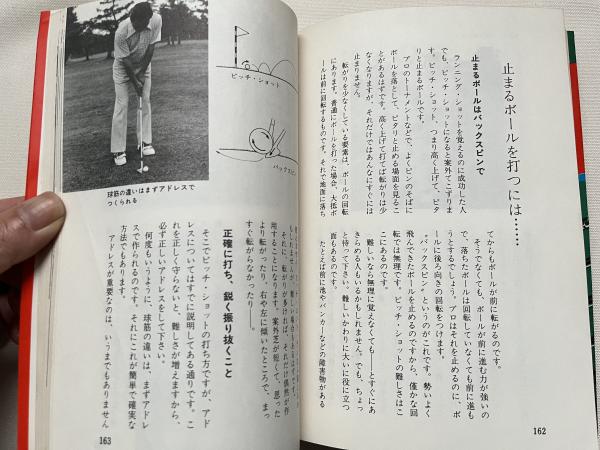 止まるボールを打つには……
止まるボールはバックスピンで
ランニング・ショットを覚えるのに成功した人
でも、ピッチ・ショットになると案外てこずりま
す。ピッチ・ショット、つまり高く上げて、ピタ
リと止まるボールです。
プロのトーナメントなどで、よくピンのそばに
ボールを落として、ピタリと止める場面を見るこ
とがあるはずです。高く上げて打てば転がりは少
なくなりますが、それだけではあんなにすぐには
止まりません。
転がりを少なくしている要素は、ボールの回転
にあります。普通にボールを打った場合、大抵ボ
ールは前に回転するものです。それで地面に落ち
てからもボールが前に転がるのです。
そうでなくても、ボールが前に進む力が強いの
で、落ちたボールは回転していなくても前に進も
うとするでしょう。プロはそれを止めるのに、ボ
ールに後ろ向きの回転をつけます。
〝バックスピン〟というのがこれです。勢いよく
飛んできたボールを止めるのですから、僅かな回
転では無理です。ピッチ・ショットの難しさはこ
こにあるのです。
難しいなら無理に覚えなくても――とすぐにあ
きらめる人もいるかもしれません。でも、ちょっ
と待って下さい。難しいかわりに大いに役に立つ
たとえば前に池やバンカーなどの障害物がある
162
ピッチ・ショット
バックスピン
球筋の違いはまずアドレスで
つくられる
それに、転がりが多ければ、それだけ偶然が作
用することになります。案外芝が短くて、思った
より転がったり、右や左に傾いたところで、まっ
すぐ転がらなかったり――。
正確に打ち、鋭く振り抜くこと
そこでピッチ・ショットの打ち方ですが、アド
レスについてはすでに説明してある通りです。こ
れを正しく守らないと、難しさが増えますから、
必ず正しいアドレスをして下さい。
何度もいうように、球筋の違いは、まずアドレ
スで作られるのです。それにこれが簡単で確実な
方法でもあります。
アドレスが重要なのは、いうまでもありません
163